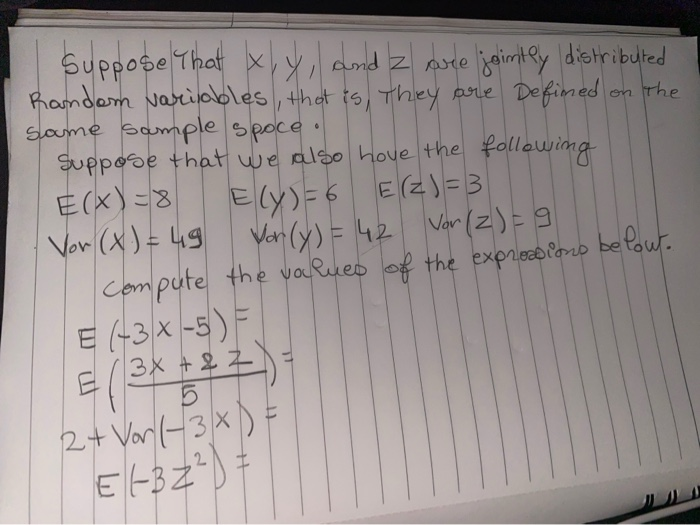 Suppose That X, Y, and Z are jointly distributed
Random variables, that is, They are Defined on the
same sample space.
Suppose that we also have the following
E(X) = 8 E(y) = 6 E(z) = 3
Var(X) = 49 Var(y) = 42 Var(z) = 9
compute the values of the expressions below.
E(-3x-5) =
E(3x + 2z / 5) =
2+Var(-3x) =
E(-3z²) =